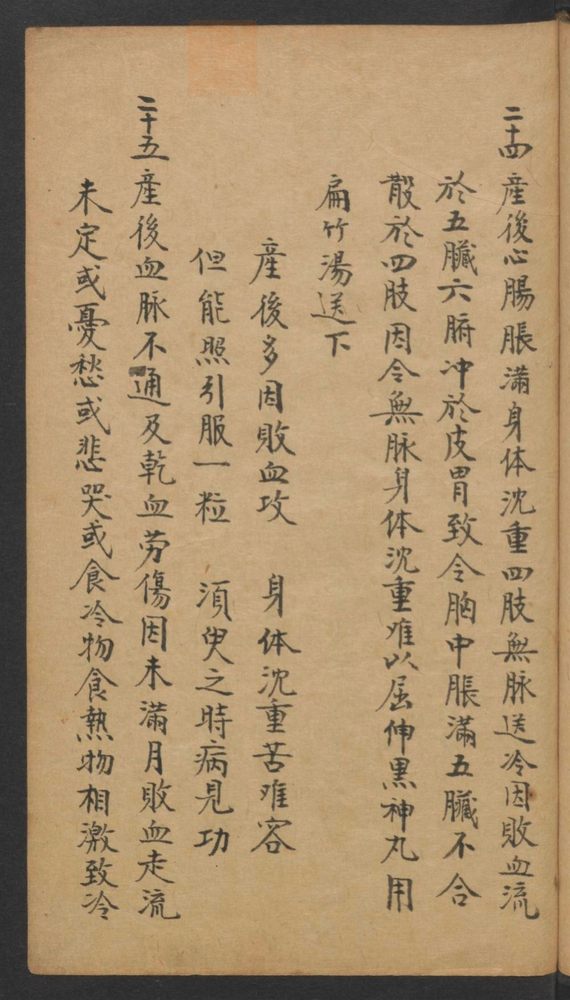 二十四產後心腸脹滿身体沈重四肢無脉送冷因敗血流
於五臟六腑冲於皮胃致令胸中脹滿五臟不合
散於四肢因令無脉身体沈重难以屈伸黑神丸用
扁竹湯送下
產後多因敗血攻　身体沈重苦难容
但能照引服一粒　須臾之時病見功
二十五產後血脉不通及乾血劳傷因未滿月敗血走流
未定或憂愁或悲哭或食冷物食熱物相激致冷